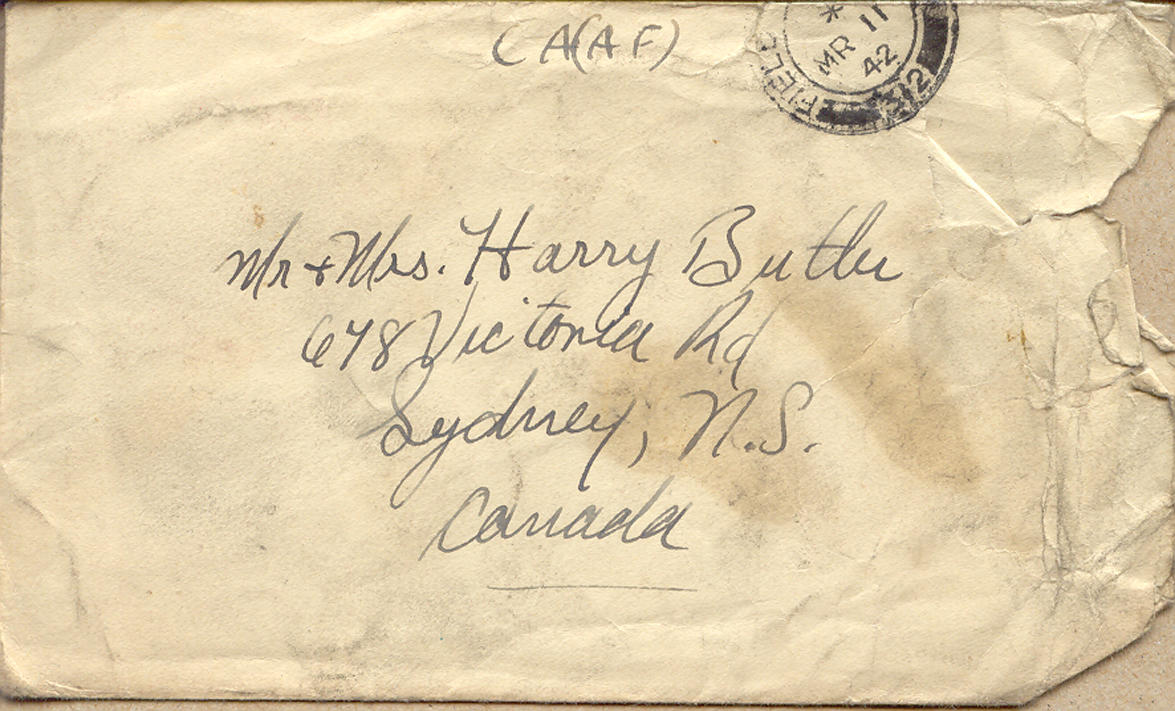 CA(AF)
*
MR 11
42
FIELD
312
Mr + Mrs. Harry Butler
678 Victoria Rd
Sydney, N.S.
Canada